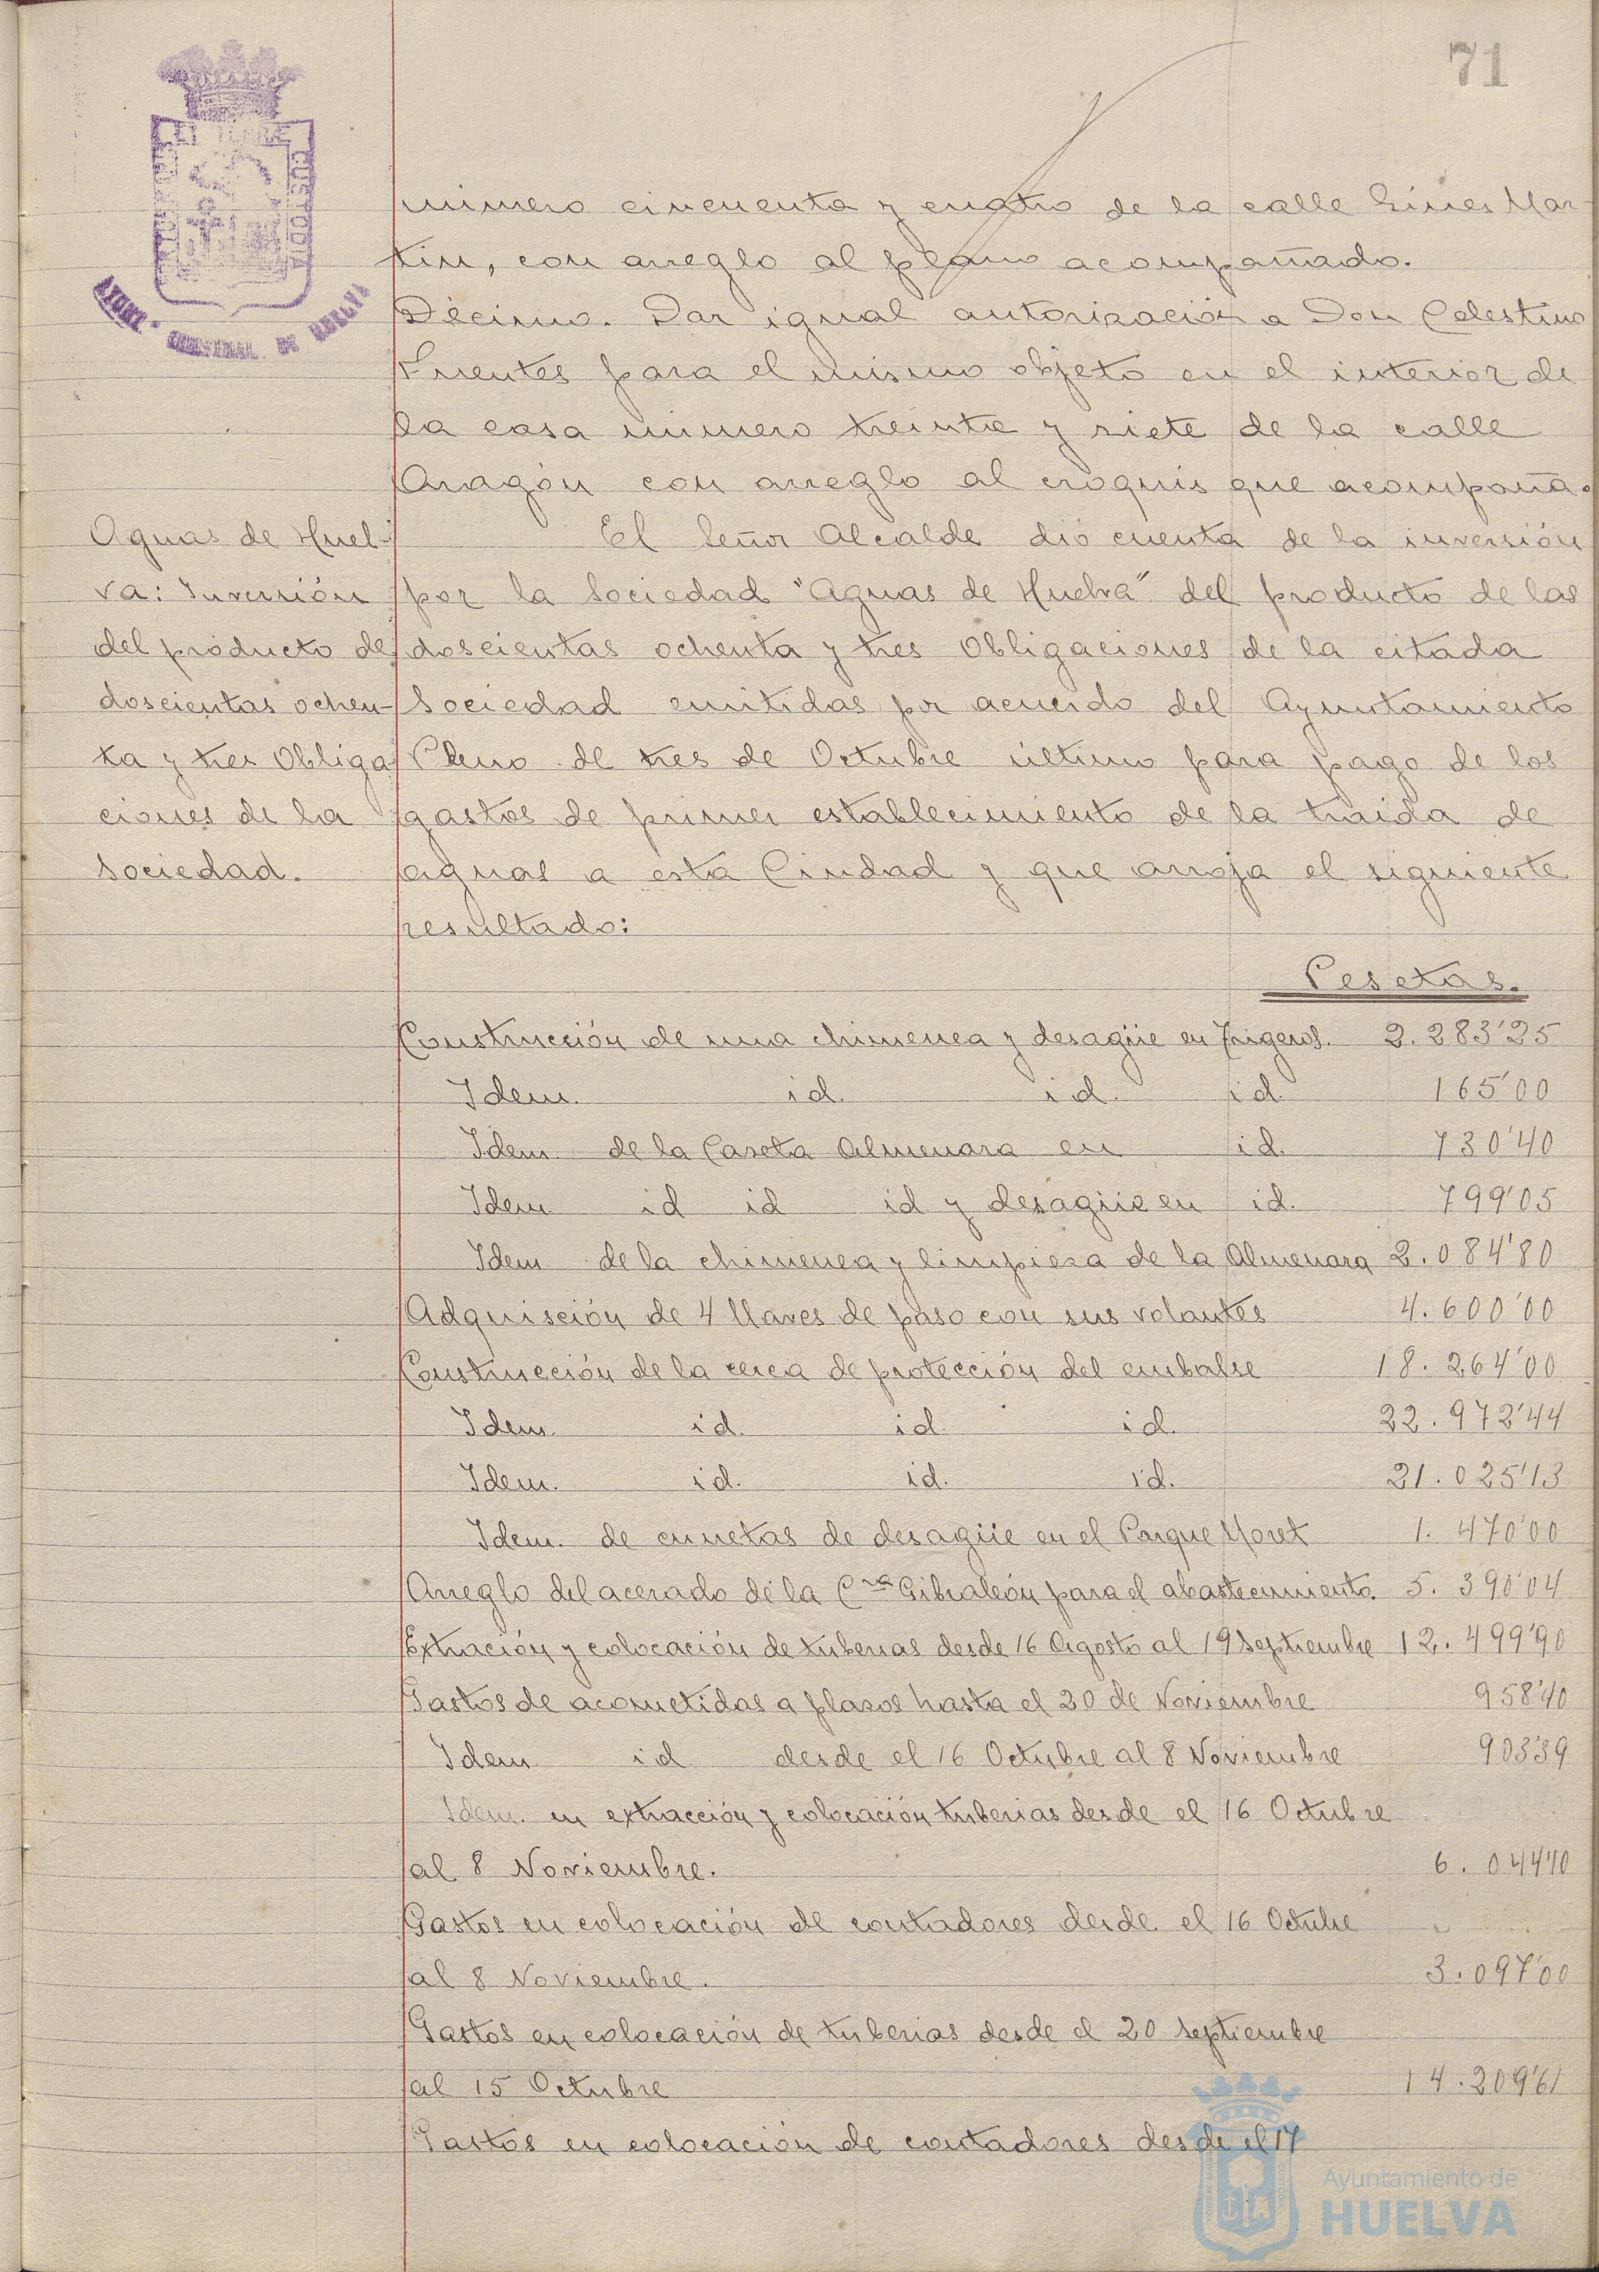 71
número cincuenta y cuatro de la calle Ginés Mar-
tín, con arreglo al plano acompañado.
Décimo. Dar igual autorización a Don Celestino
Fuentes para el mismo objeto en el interior de
la casa número treinta y siete de la calle
Aragón con arreglo al croquis que acompaña.
Aguas de Huel-
va: Inversión
del producto de
doscientas ochen-
ta y tres Obliga
ciones de la
sociedad.
El Señor Alcalde dió cuenta de la inversión
por la Sociedad "Aguas de Huelva" del producto de las
doscientas ochenta y tres Obligaciones de la citada
Sociedad emitidas por acuerdo del Ayuntamiento
Pleno de tres de Octubre último para pago de los
gastos de primer establecimiento de la traida de
aguas a esta Ciudad y que arroja el siguiente
resultado:
Pesetas.
Construcción de una chimenea y desagüe en Trigeros. 2.283'25
Idem. id. id. id. 165'00
Idem de la Caseta Almenara en id. 730'40
Idem id id id y desagüe en id. 799'05
Idem de la chimenea y limpieza de la Almenara 2.084'80
Adquisción de 4 llaves de paso con sus volantes 4.600'00
Construcción de la cerca de protección del embalse 18.264'00
Idem. id. id. id. 22.972'44
Idem. id. id. id. 21.025'13
Idem. de cunetas de desagüe en el Parque Moret 1.470'00
Arreglo del acerado de la Cra Gibraleón para el abastecimiento. 5.390'04
Extración y colocación de tuberias desde 16 Agosto al 19 Septiembre 12.499'90
Gastos de acometidas a plazos hasta el 20 de Noviembre 958'40
Idem id desde el 16 Octubre al 8 Noviembre 903'39
Idem. en extracción y colocación tuberias desde el 16 Octubre
al 8 Noviembre. 6.044'10
Gastos en colocación de contadores desde el 16 Octubre
al 8 Noviembre. 3.097'00
Gastos en colocación de tuberias desde el 20 Septiembre
al 15 Octubre 14.209'61
Gastos en colocación de contadores desde el 17
Ayuntamiento de
HUELVA